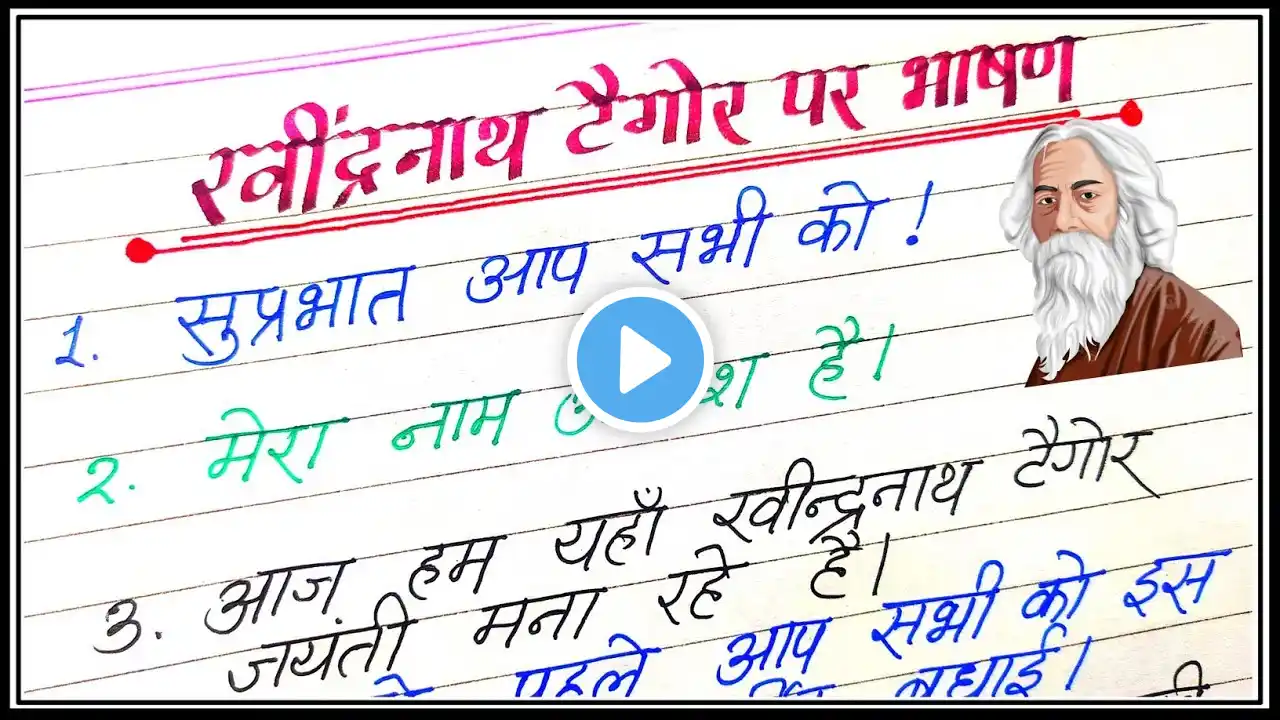 रवींद्रनाथ टैगोर पर भाषण
1. सुप्रभात आप सभी को !
2. मेरा नाम है।
3. आज हम यहाँ रवीन्द्रनाथ टैगोर
जयंती मना रहे है।
पहले आप सभी को इस
बधाई।